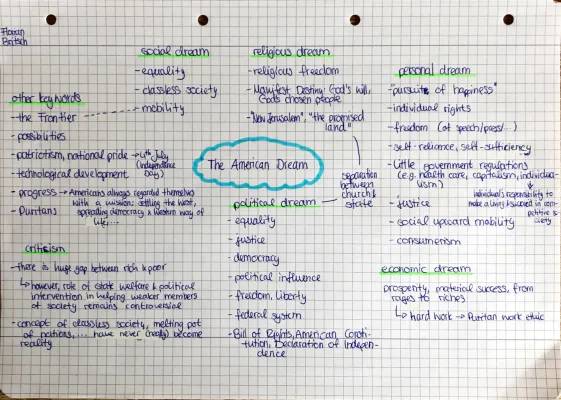 Florian
Britsch
social dream
- equality
- classless society
- mobility
religious dream
- religious freedom
- Manifest Destiny: God's will,
God's chosen people
- "New Jerusalem", "the promised
land"
separation
between
church &
state
personal dream
- "pursuit of happiness"
- individual rights
- freedom (of speech/press/...)
- self-reliance, self-sufficiency
- Little government regulations
(e.g. health care, capitalism, individua-
lism)
individual's responsibility to
make a living & succeed in com-
petitive society
- justice
- social upward mobility
- consumerism
other keywords
- the Frontier
- possibilities
- patriotism, national pride → 4th July
(Independence
Day)
- technological development
- progress → Americans always regarded themselves
with a mission: settling the West,
spreading democracy & Western way of
life,...
- Puritans
The American Dream
political dream
- equality
- justice
- democracy
- political influence
- freedom, liberty
- federal system
- Bill of Rights, American Consti-
tution, Declaration of Indepen-
dence
criticism
- there is huge gap between rich & poor
↳ however, role of state welfare & political
intervention in helping weaker members
of society remains controversial
- concept of classless society, melting pot
of nations, ... have never (really) become
reality
economic dream
prosperity, material success, from
rages to riches
↳ hard work → Puritan work ethic